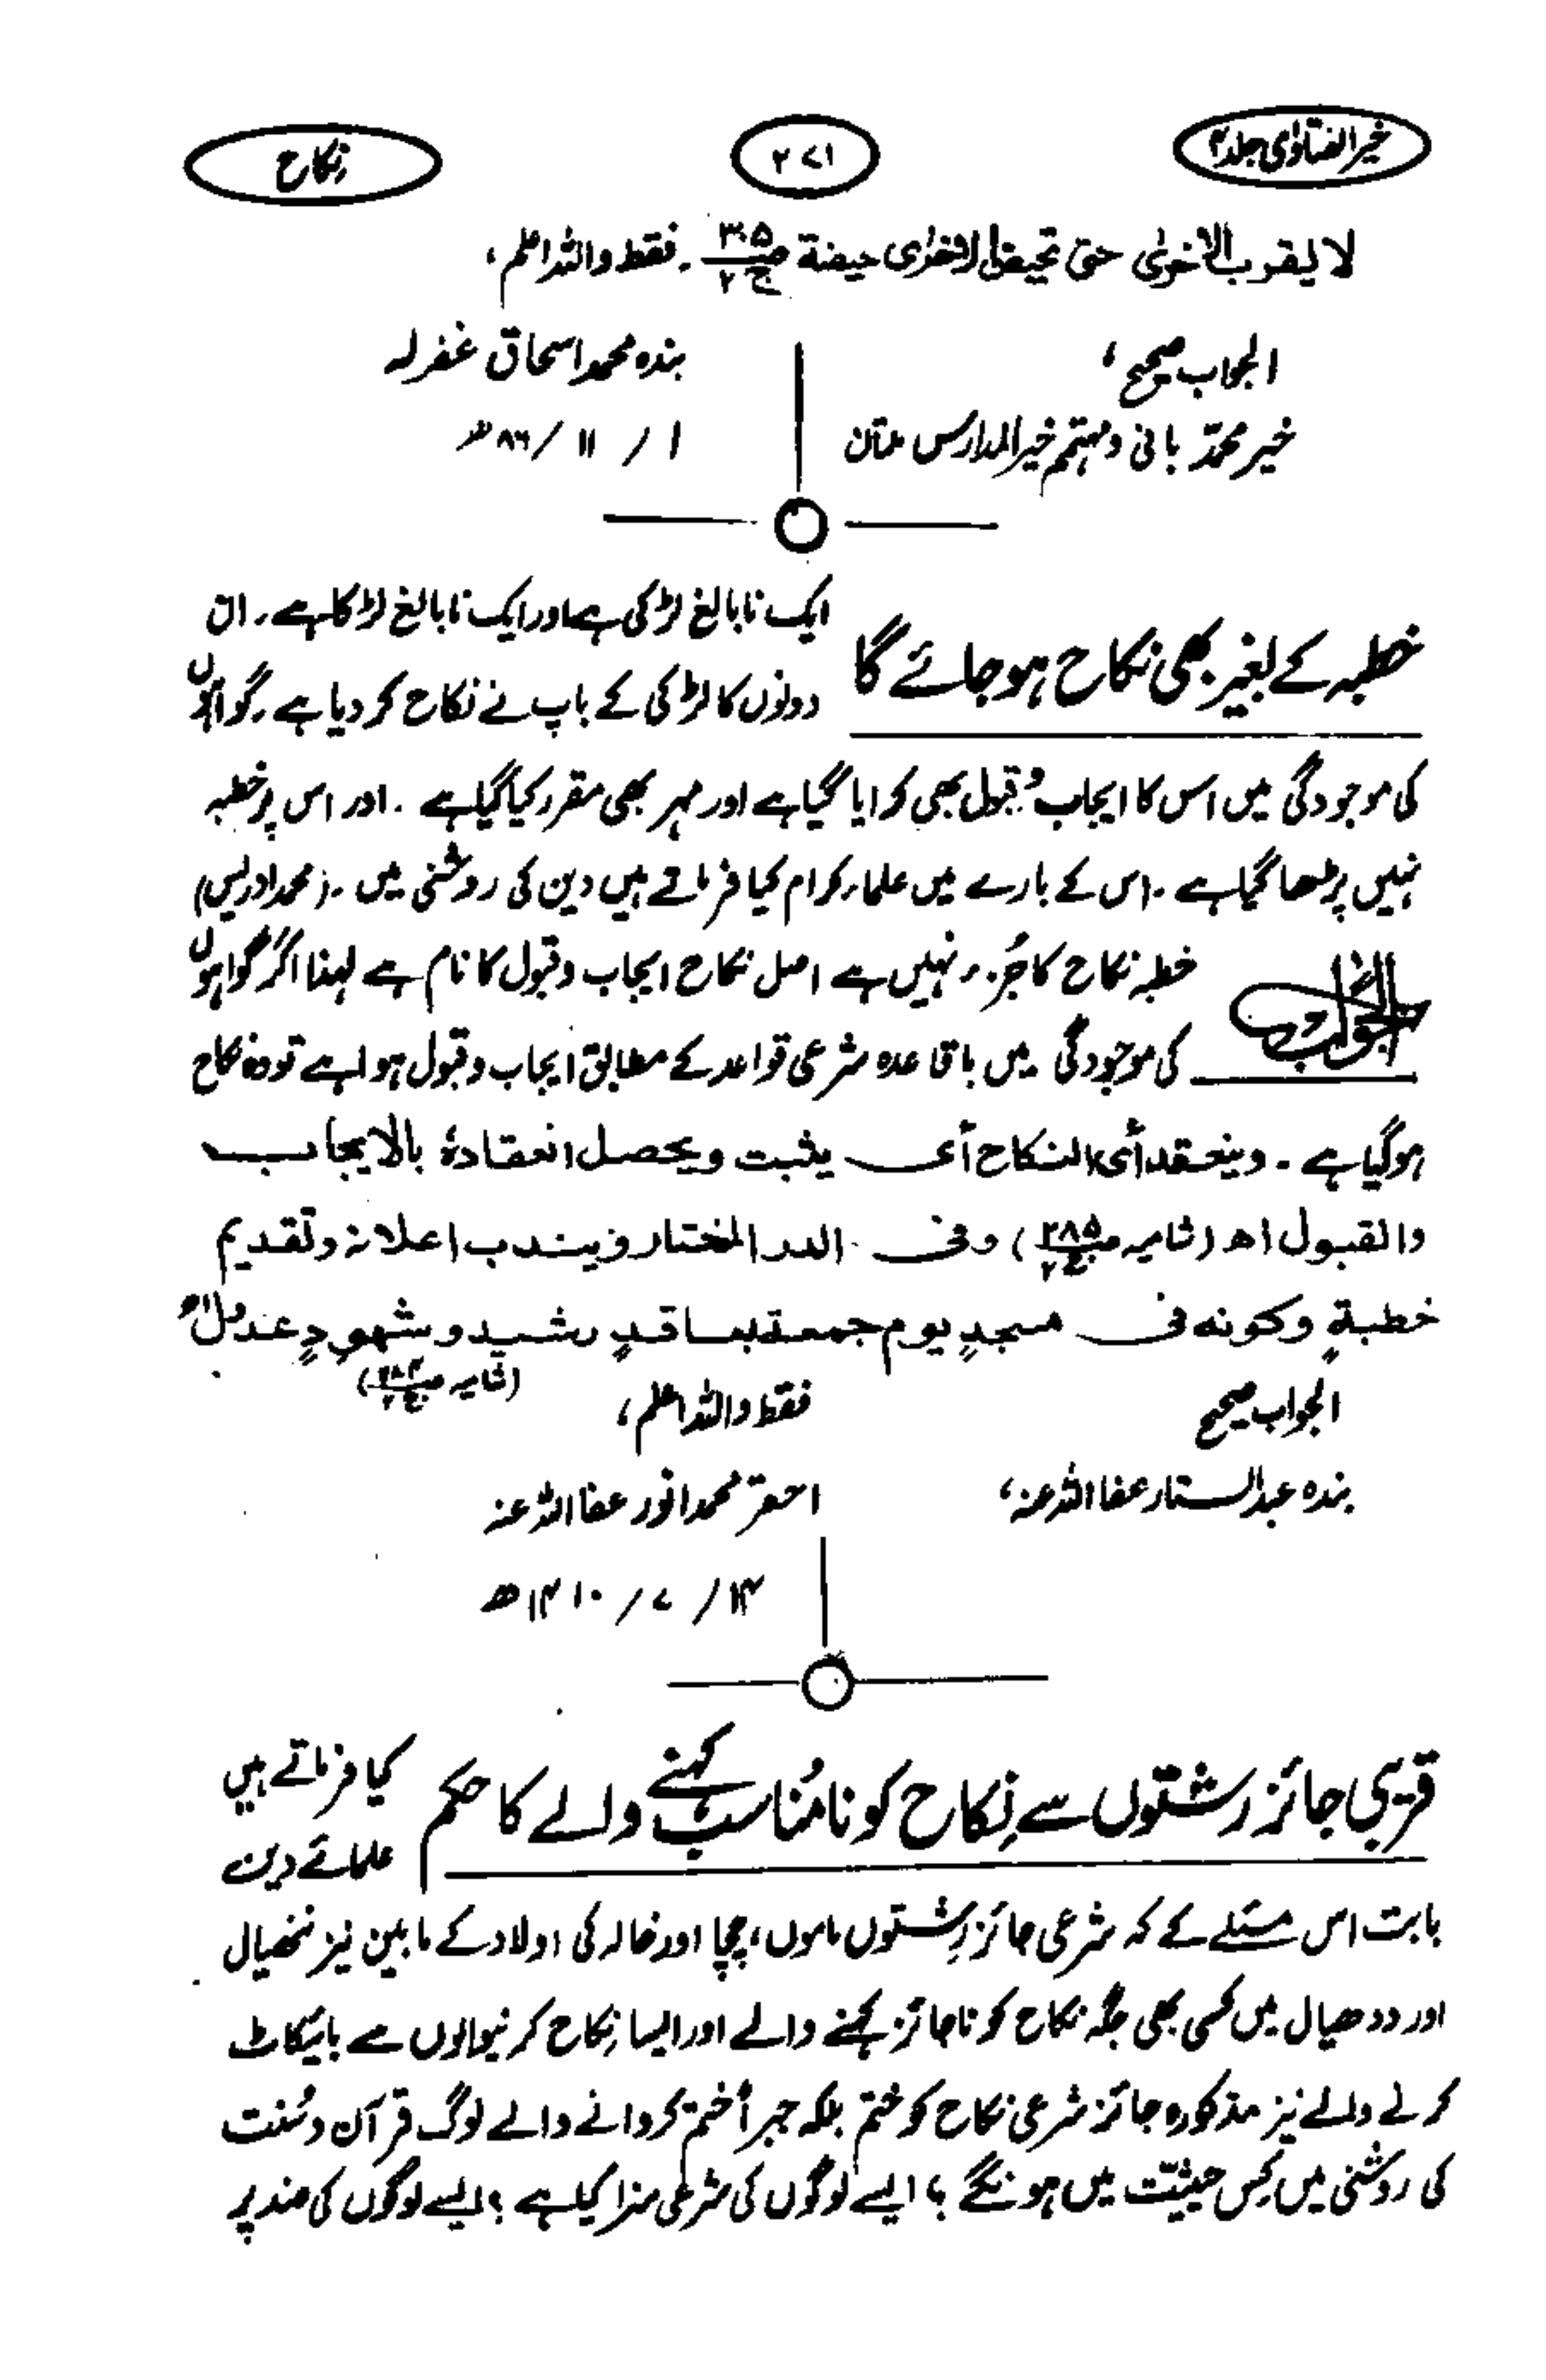 خیر الفتاوٰی جلد ۴
۲۷۱
نکاح
لا یقرب الاخرٰی حتیٰ تحیض الاخرٰی حیضة ص۳۰۵ ج۲ ۔ فقط واللہ اعلم ،
الجواب صحیح ،
خیر محمدؒ بانی و مہتمم خیر المدارس ملتان
بندہ محمد اسحاق غفرلہ
۱ / ۱۱ / ۸۶ ھ
خطبہ کے بغیر بھی نکاح ہو جائے گا
ایک نابالغ لڑکی ہے اور ایک نابالغ لڑکا ہے ۔ ان
دونوں کا لڑکی کے باپ نے نکاح کر دیا ہے ۔ گواہوں
کی موجودگی میں اس کا ایجاب و قبول بھی کرایا گیا ہے اور مہر بھی مقرر کیا گیا ہے ۔ اور اس پر خطبہ
نہیں پڑھا گیا ہے ۔ اس کے بارے میں علماء کرام کیا فرماتے ہیں دین کی روشنی میں ۔ (محمد ادریس)
الجواب
خطبہ نکاح کا جُزء نہیں ہے اصل نکاح ایجاب و قبول کا نام ہے لہٰذا اگر گواہوں
کی موجودگی میں باقاعدہ شرعی قواعد کے مطابق ایجاب و قبول ہوا ہے تو وہ نکاح
ہو گیا ہے ۔ وینعقد أی النکاح أی یثبت ویحصل انعقادہٗ بالایجاب
والقبول اھ (شامیہ ص۲۸۵ ج۲) وفی الدر المختار ویندب اعلانہ وتقدیم
خطبةٍ وکونہ فی مسجدٍ یوم جمعة بعاقدٍ رشیدٍ و شھودٍ عدولٍ اھ
(شامیہ ج۲)
الجواب صحیح
فقط واللہ اعلم ،
بندہ عبدالستار عفا اللہ عنہ ،
احقر محمد انور عفا اللہ عنہ
۱۴ / ۷ / ۱۴۱۰ ھ
قریبی جائز رشتوں سے نِکاح کو نامُناسب کہنے والے کا حکم
کیا فرماتے ہیں
علمائے دین
بابت اس مسئلے کے کہ شرعی جائز رِشتوں ماموں ، چچا اور خالہ کی اولاد کے مابین نیز ننھیال
اور ددھیال میں کسی بھی جگہ نکاح کو ناجائز کہنے والے اور ایسا نِکاح کرنیوالوں سے بائیکاٹ
کرنے والے نیز مذکورہ جائز شرعی نکاح کو ختم بلکہ جبراً ختم کروانے والے لوگ قرآن و سُنت
کی روشنی میں کِس حیثیّت میں ہونگے ؟ ایسے لوگوں کی شرعی سزا کیا ہے ؟ ایسے لوگوں کی ضد پر